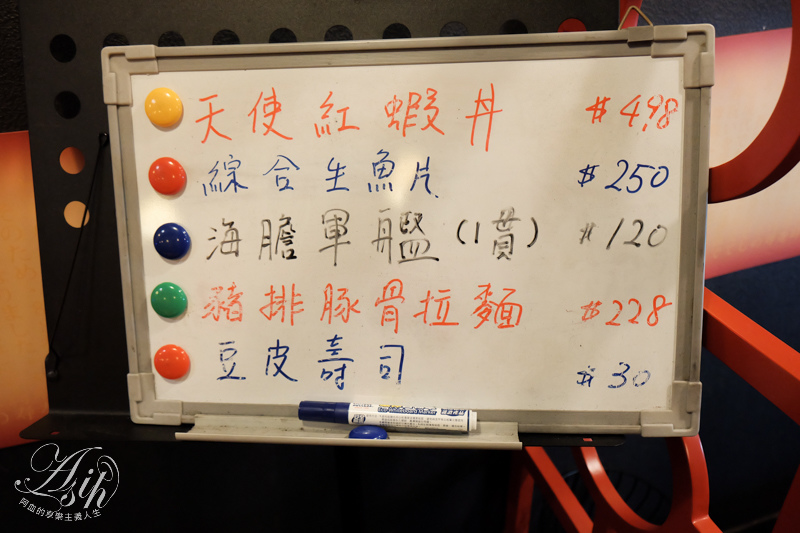 天使紅蝦丼 $498
綜合生魚片 $250
海膽軍艦(1貫) $120
豬排豚骨拉麵 $228
豆皮壽司 $30
Asih
阿酷的享樂主義人生